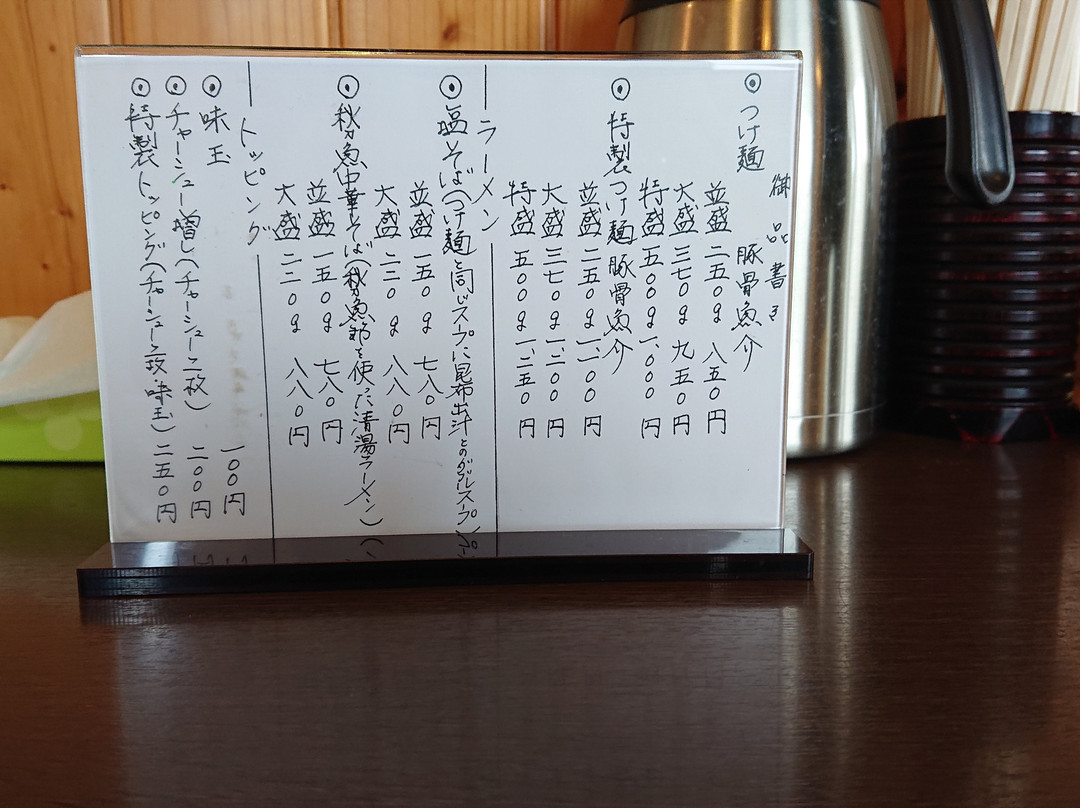 御品書き
◉つけ麺 豚骨魚介
並盛 二五〇g 八五〇円
大盛 三七〇g 九五〇円
特盛 五〇〇g 一、〇〇〇円
◉特製つけ麺 豚骨魚介
並盛 二五〇g 一、一〇〇円
大盛 三七〇g 一、二〇〇円
特盛 五〇〇g 一、二五〇円
ラーメン
◉塩そば(つけ麺と同じスープに昆布出汁とのダブルスープ)
並盛 一五〇g 七八〇円
大盛 二二〇g 八八〇円
◉秋刀魚中華そば(秋刀魚節を使った清湯ラーメン)
並盛 一五〇g 七八〇円
大盛 二二〇g 八八〇円
トッピング
◉味玉 一〇〇円
◉チャーシュー増し(チャーシュー二枚) 二〇〇円
◉特製トッピング(チャーシュー二枚・味玉) 二五〇円